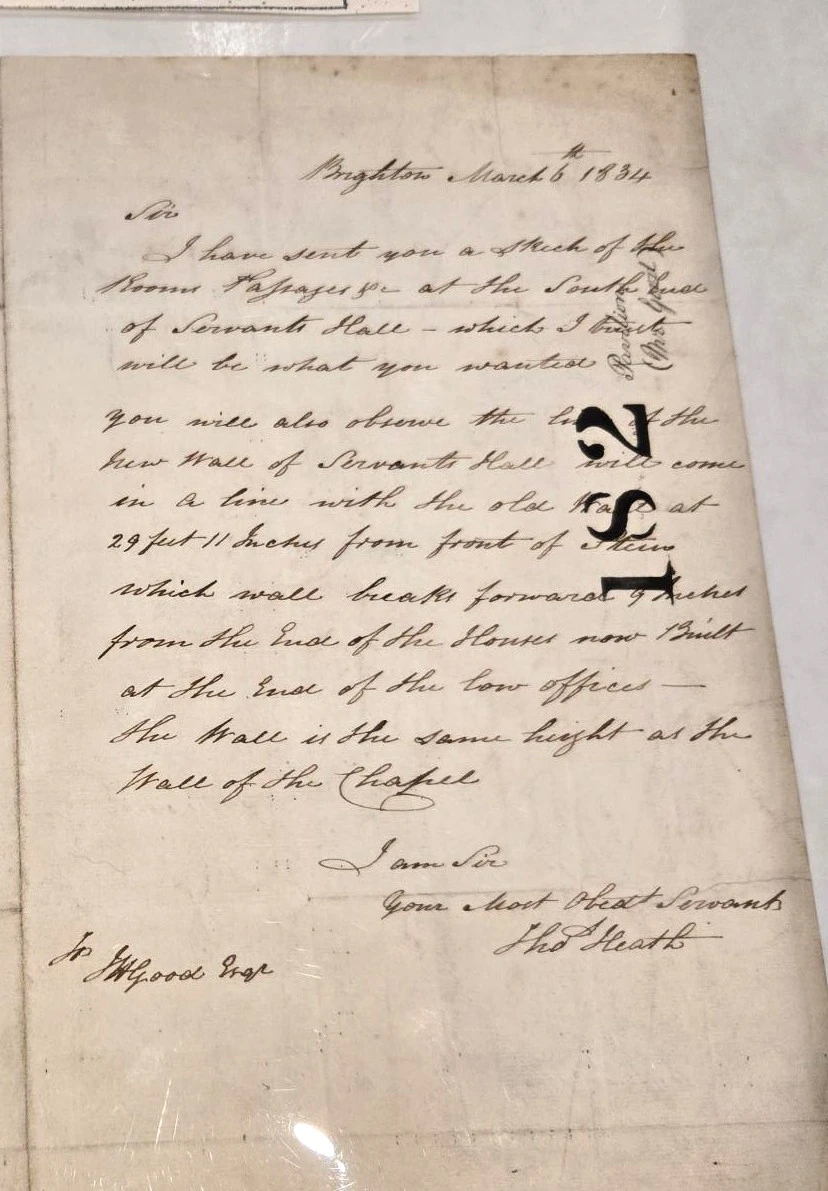 Brighton March 6th 1834
Sir
I have sent you a skech of the
Rooms Passages &c at the South End
of Servants Hall - which I trust
will be what you wanted
you will also observe the of the
New Wall of Servants Hall will come
in a line with the old Wall at
29 feet 11 Inches from front of
which wall breaks forward 9 Inches
from the End of the Houses now Built
at the End of the low offices —
the Wall is the same height as the
Wall of the Chapel
I am Sir
Your Most Obedt Servant
Thos Heath
To JHGood Esqr
182
Pavilion
(Mr Good)